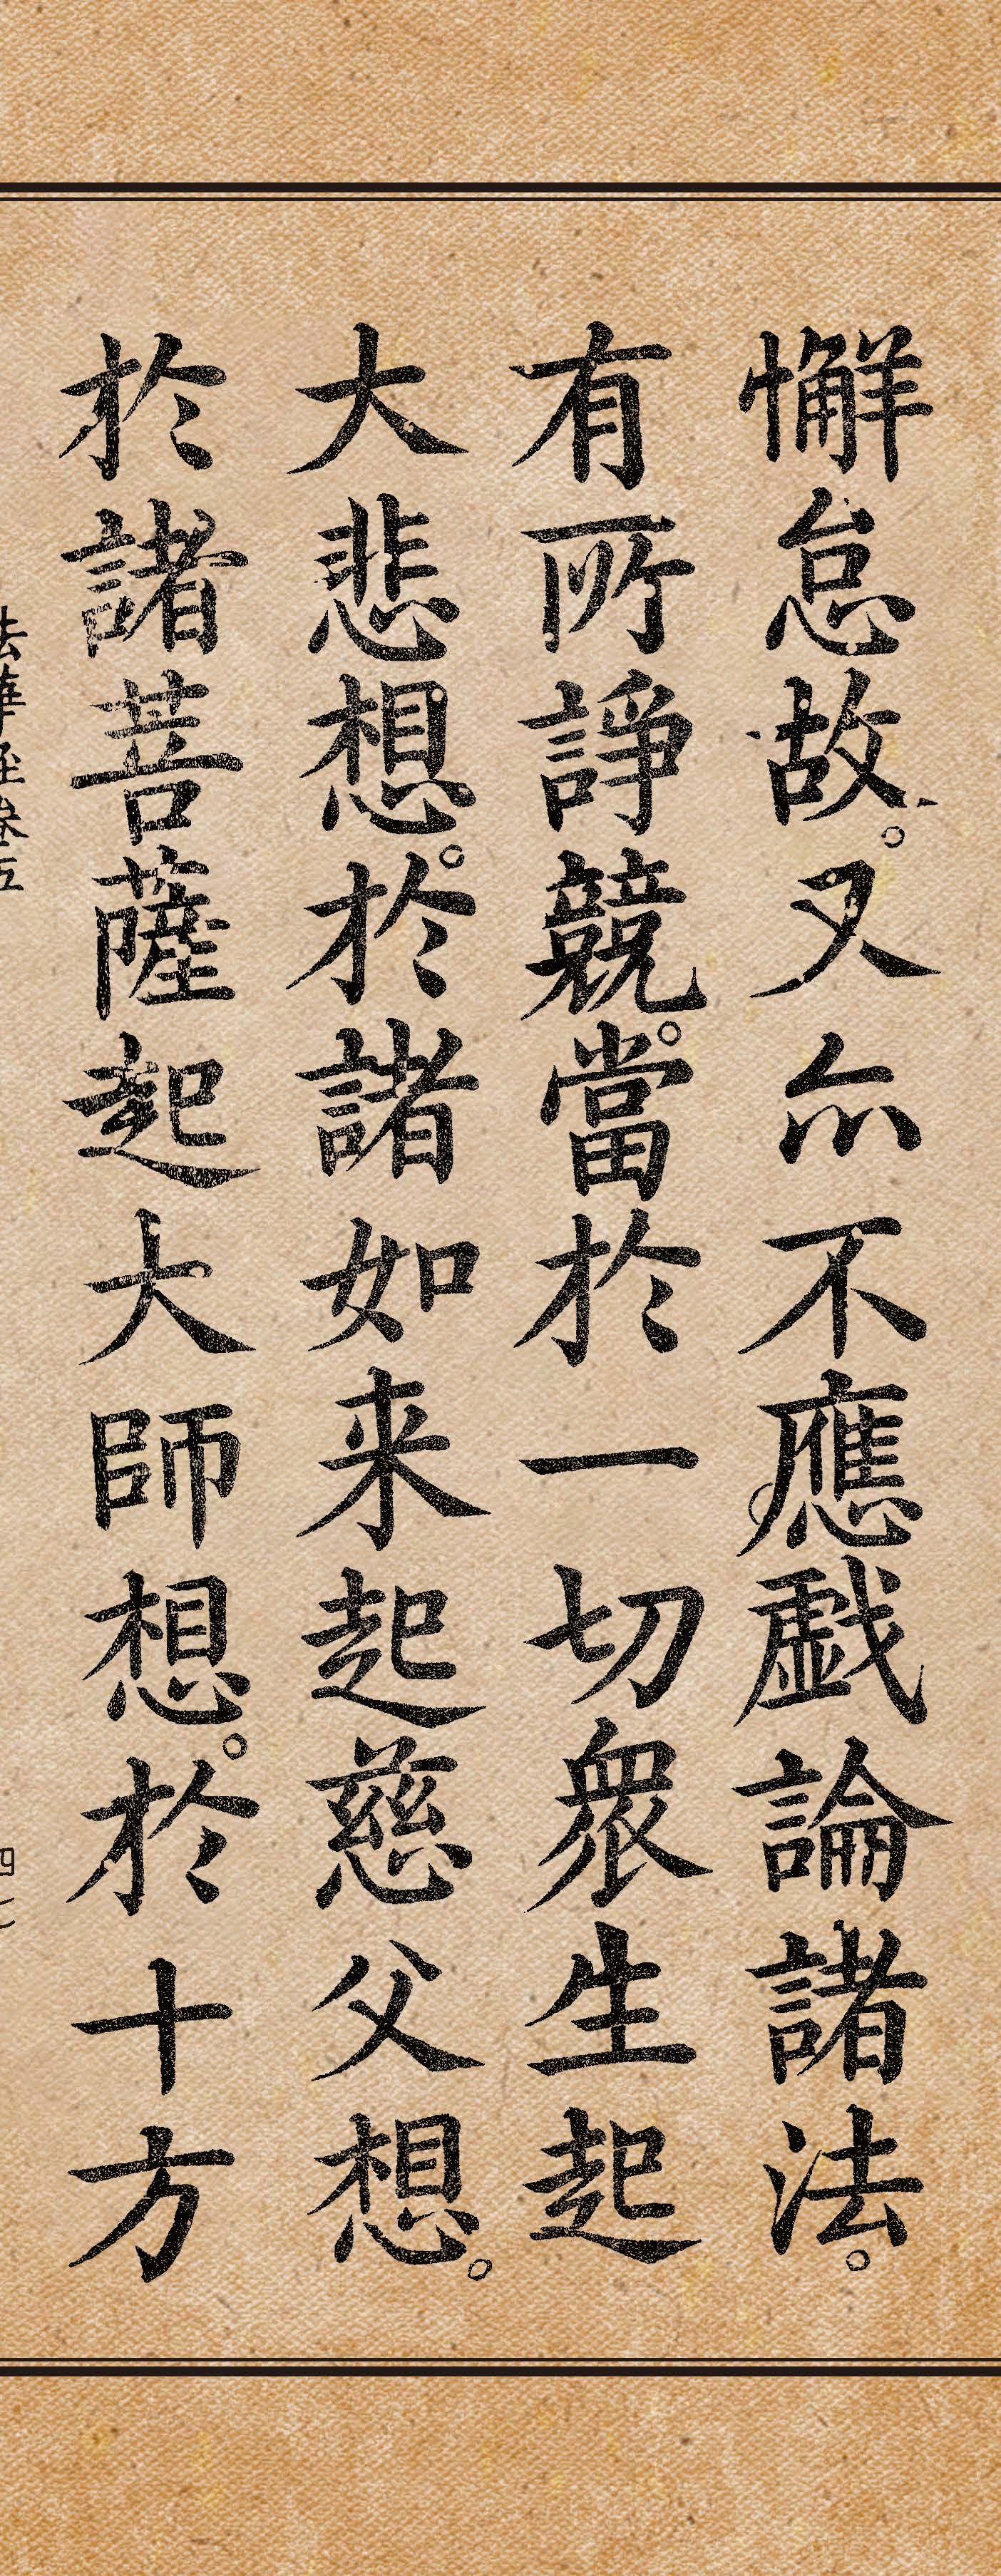 懈怠故。又亦不應戱論諸法。
有所諍競。當於一切衆生起
大悲想。於諸如来起慈父想。
於諸菩薩起大師想。於十方